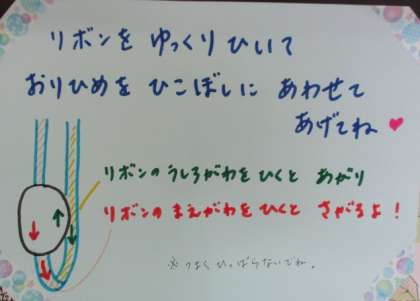 リボンを ゆっくり ひいて
おりひめを ひこぼしに あわせて
あげてね
リボンの うしろがわを ひくと あがり
リボンの まえがわを ひくと さがるよ!
※つよく ひっぱらないでね。